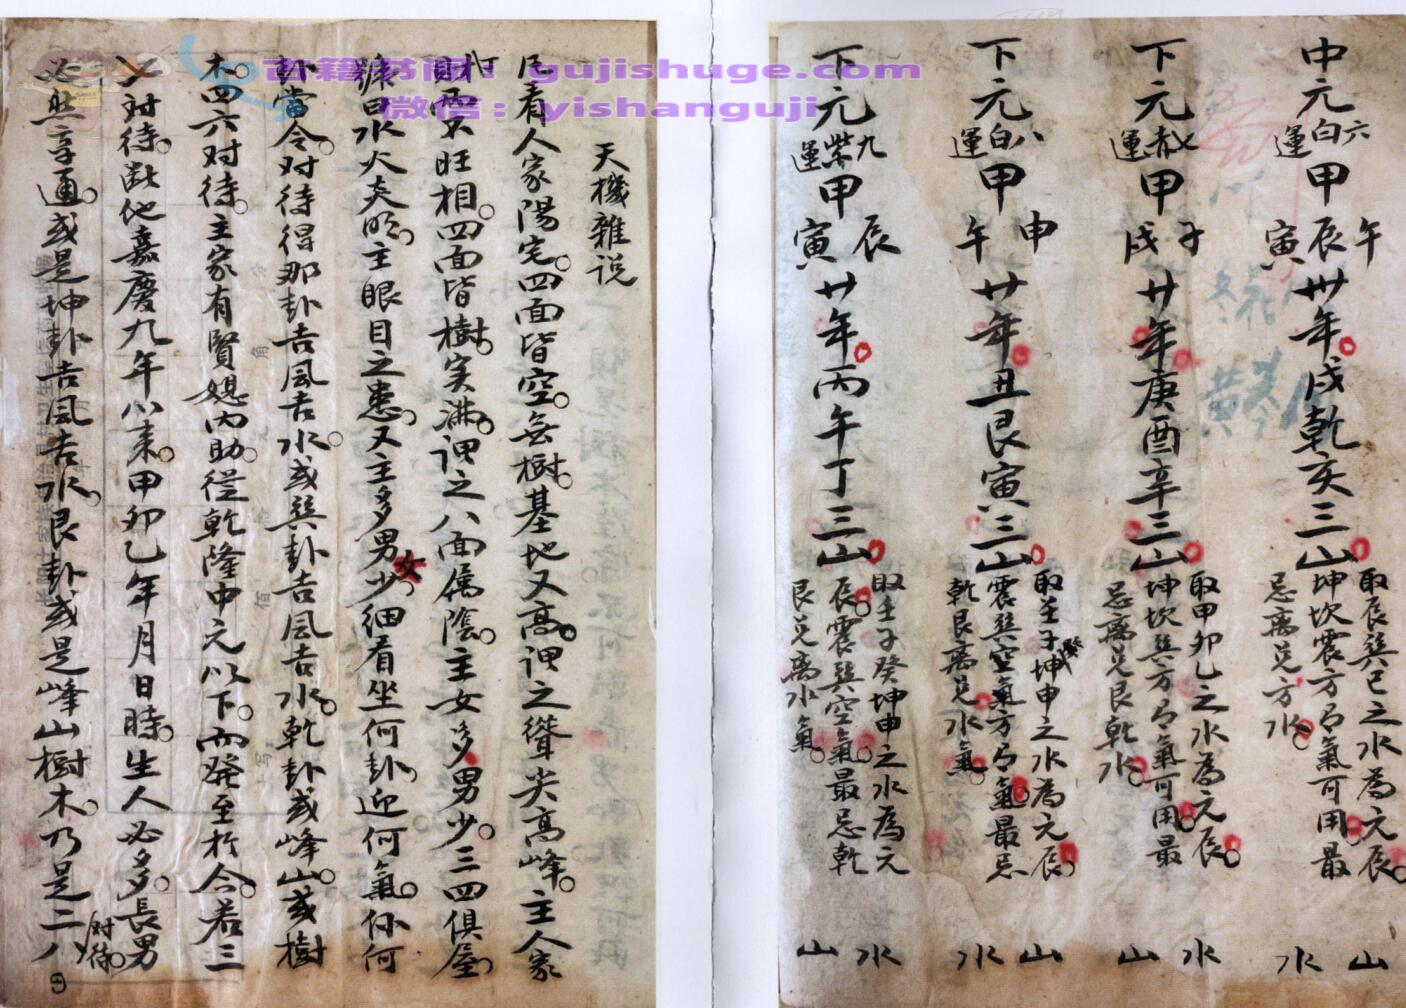 古籍书阁：gujishuge.com
微信：yishanguji
中元六白運甲辰午寅卅年戌乾亥三山
取辰巽巳之水為元辰
坤坎震方有氣可用最
忌离兑方水
山水
下元七赤運甲子戌廿年庚酉辛三山
取甲卯乙之水為元辰
坤坎巽方有氣可用最
忌离兑艮乾水
水山
下元八白運甲申午廿年丑艮寅三山
取壬子癸坤申之水為元辰
震巽空氣方有氣最忌
乾艮离兑水氣
山水
下元九紫運甲辰寅廿年丙午丁三山
取壬子癸坤申之水為元
辰震巽空氣最忌乾
艮兑离水氣
水山
天機雜说
凡看人家陽宅四面皆空無樹基地又高谓之聳尖高峰主人家
財丁不旺相四面皆樹实满谓之八面属陰主女多男少三四俱屋
號曰水火炎照主眼目之患又主多男少女细看坐何卦迎何氣係何
卦當令对待得那卦吉風吉水或巽卦吉風吉水乾卦或峰山或樹
木四六对待主家有賢媳内助從乾隆中元以下而發至於今若三
七对待斷他嘉慶九年以来甲卯乙年月日時生人必多長男
必然享通或是坤卦吉風吉水艮卦或是峰山樹木乃是二八对待